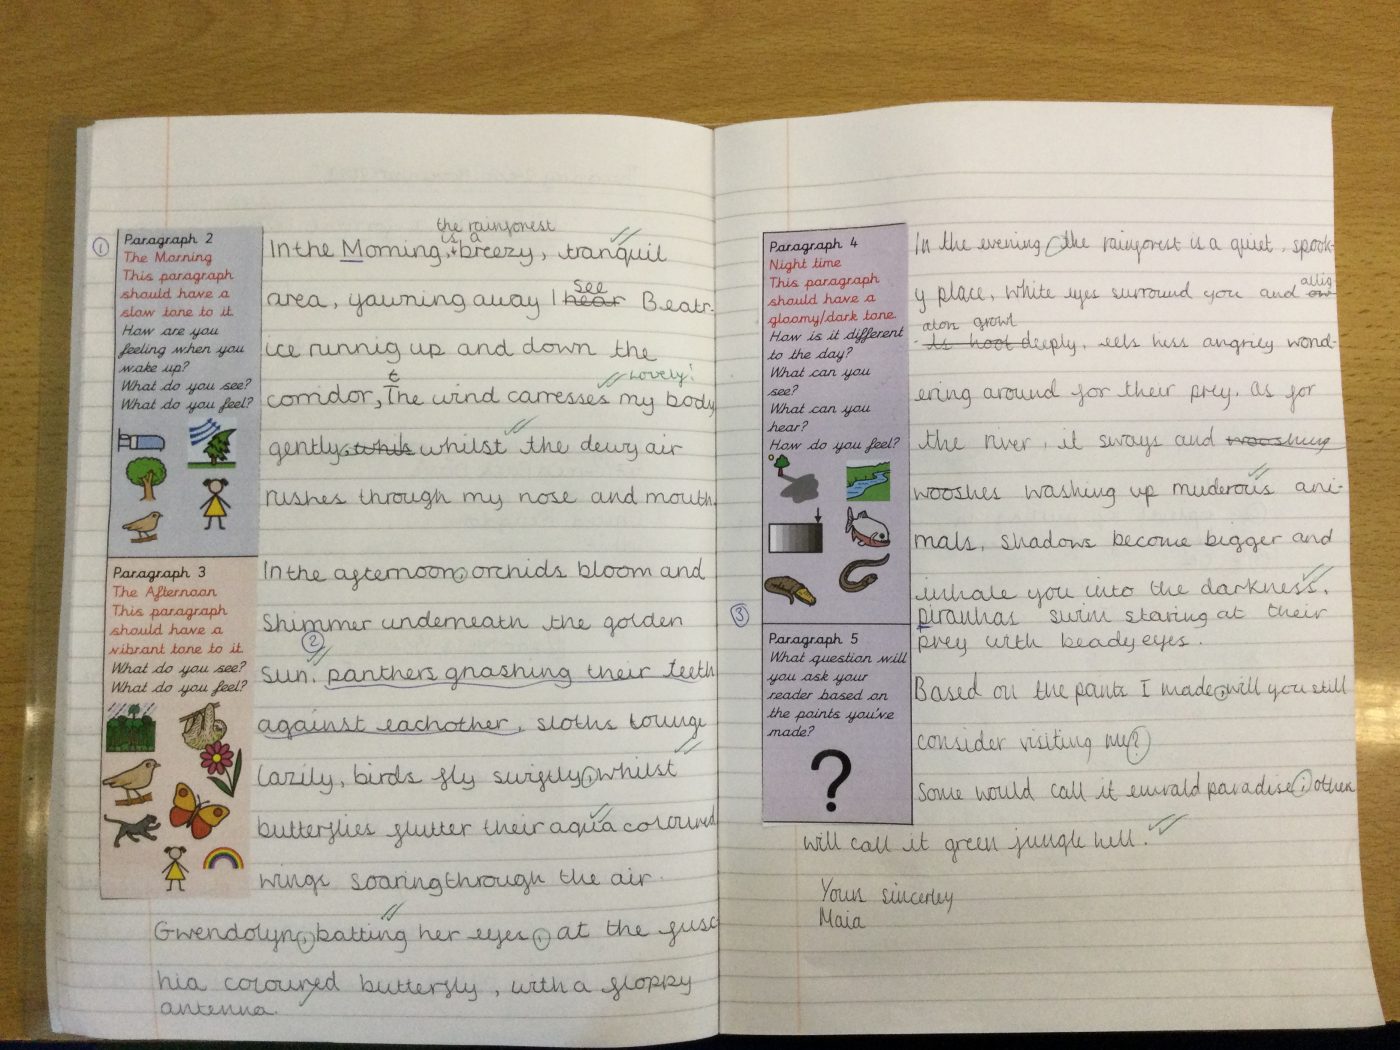 1
Paragraph 2
The Morning
This paragraph
should have a
slow tone to it.
How are you
feeling when you
wake up?
What do you see?
What do you feel?
the rainforest
is a
In the Morning, breezy, tranquil
see
area, yawning away I hear Beatr-
ice runnig up and down the
t
Lovely!
corridor, The wind carresses my body
gently whils whilst the dewy air
rushes through my nose and mouth.
Paragraph 3
The Afternoon
This paragraph
should have a
vibrant tone to it.
What do you see?
What do you feel?
In the afternoon, orchids bloom and
shimmer underneath the golden
2
sun, panthers gnashing their teeth
against eachother, sloths lounge
lazily, birds fly swiftly, whilst
butterflies flutter their aqua coloured
wings soaring through the air.
Gwendolyn, batting her eyes, at the fusc
hia coloured butterfly, with a floppy
antenna.
Paragraph 4
Night time
This paragraph
should have a
gloomy/dark tone.
How is it different
to the day?
What can you
see?
What can you
hear?
How do you feel?
In the evening, the rainforest is a quiet, spook-
allig
y place, white eyes surround you and ow
ators growl
ls hoot deeply, eels hiss angriley wond-
ering around for their prey. As for
the river, it sways and wooshing
wooshes washing up muderous ani-
mals, shadows become bigger and
inhale you into the darkness,
piranhas swim staring at their
prey with beady eyes.
3
Paragraph 5
What question will
you ask your
reader based on
the points you've
made?
?
Based on the points I made, will you still
consider visiting me?
Some would call it emrald paradise; other
will call it green jungle hell.
Yours sincerley
Maia